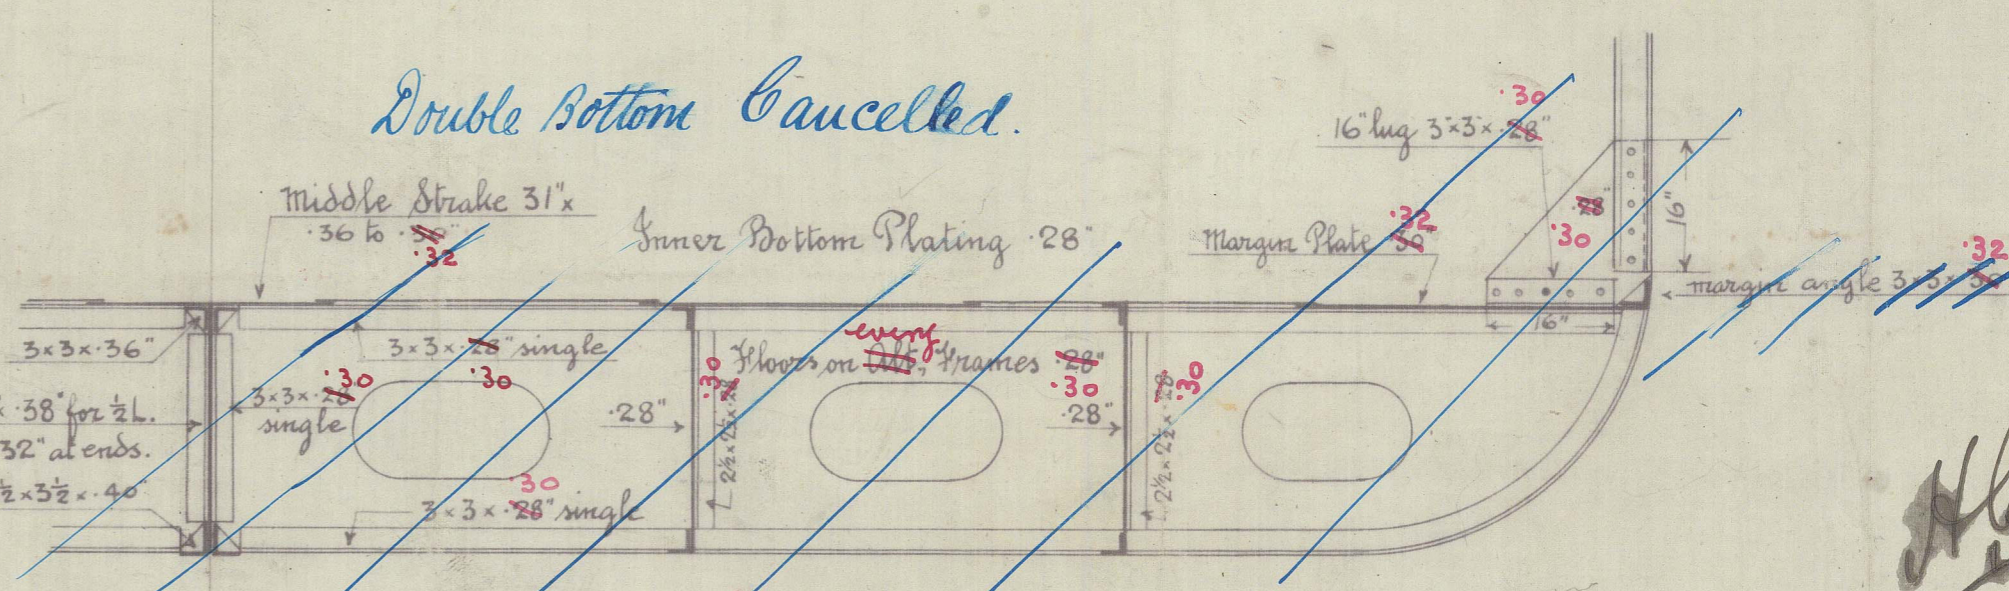 Double Bottom Cancelled.
·30
16" lug 3"×3"× ·28"
Middle Strake 31"×
·36 to ·30"
·32
Inner Bottom Plating ·28"
·32
Margin Plate ·30"
·28"
·30
16"
·32
margin angle 3×3×·30
16"
3×3×·36"
3×3×·28" single
·30
every
Floors on Alt. Frames ·28"
·30
·30
3×3×·28"
single
·38" for ½ L.
32" at ends.
½×3½×·40"
·28"
·30
2½×2½×·28
·28"
·30
2½×2½×·28
·30
3×3×·28" single